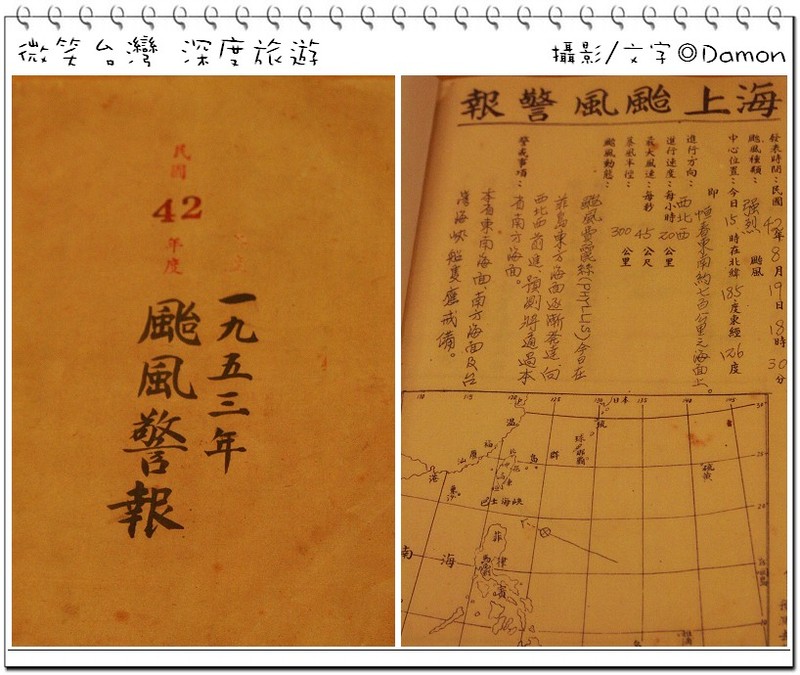 微笑台灣 深度旅遊
攝影/文字 ©Damon
民國
42
年度
一九五三年
颱風警報
海上颱風警報
發表時間：民國42年8月19日18時30分
颱風種類：強烈 颱風
中心位置：今日15時在北緯18.5度東經126度
即恒春東南約七百公里之海面上。
進行方向：西北西
進行速度：每小時20公里
最大風速：每秒45公尺
暴風半徑：300公里
颱風動態：
颱風費麗絲(PHYLLIS)今日在
菲島東方海面逐漸發達，向
西北西前進，預測將通過本
省南方海面。
警戒事項：
本省東南海面，南方海面及台
灣海峽船隻應戒備。
日本
琉球群島
那霸
硫黃
溫
福
廈
汕
港
東沙
巴士海峽
南海
菲律賓
馬剌
115
120
125
130
135
140
145
30°
25°
20°